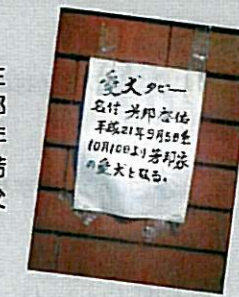 愛犬タビー
名付 芳邦啓佑
平成21年9月5日生
10月10日より芳邦家
の愛犬となる。